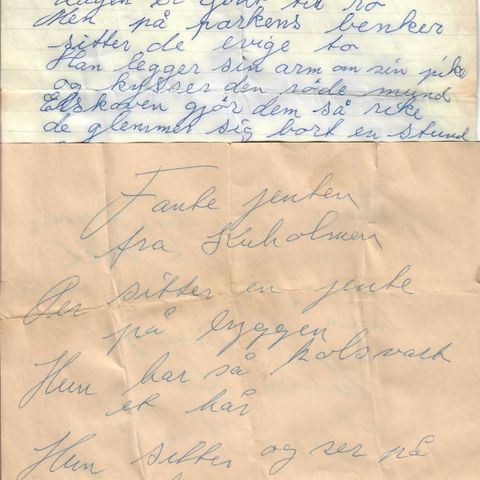 dagen er gått til ro
Men på parkens benker
sitter de evige to
Han legger sin arm om sin pike
og kysser den røde mund
Elskoven gjør dem så rike
de glemmer sig bort en stund
Fante jenten
fra Kuholmen
Der sitter en jente
på byggen
Hun har så kolsvart
et hår
Hun sitter og ser på